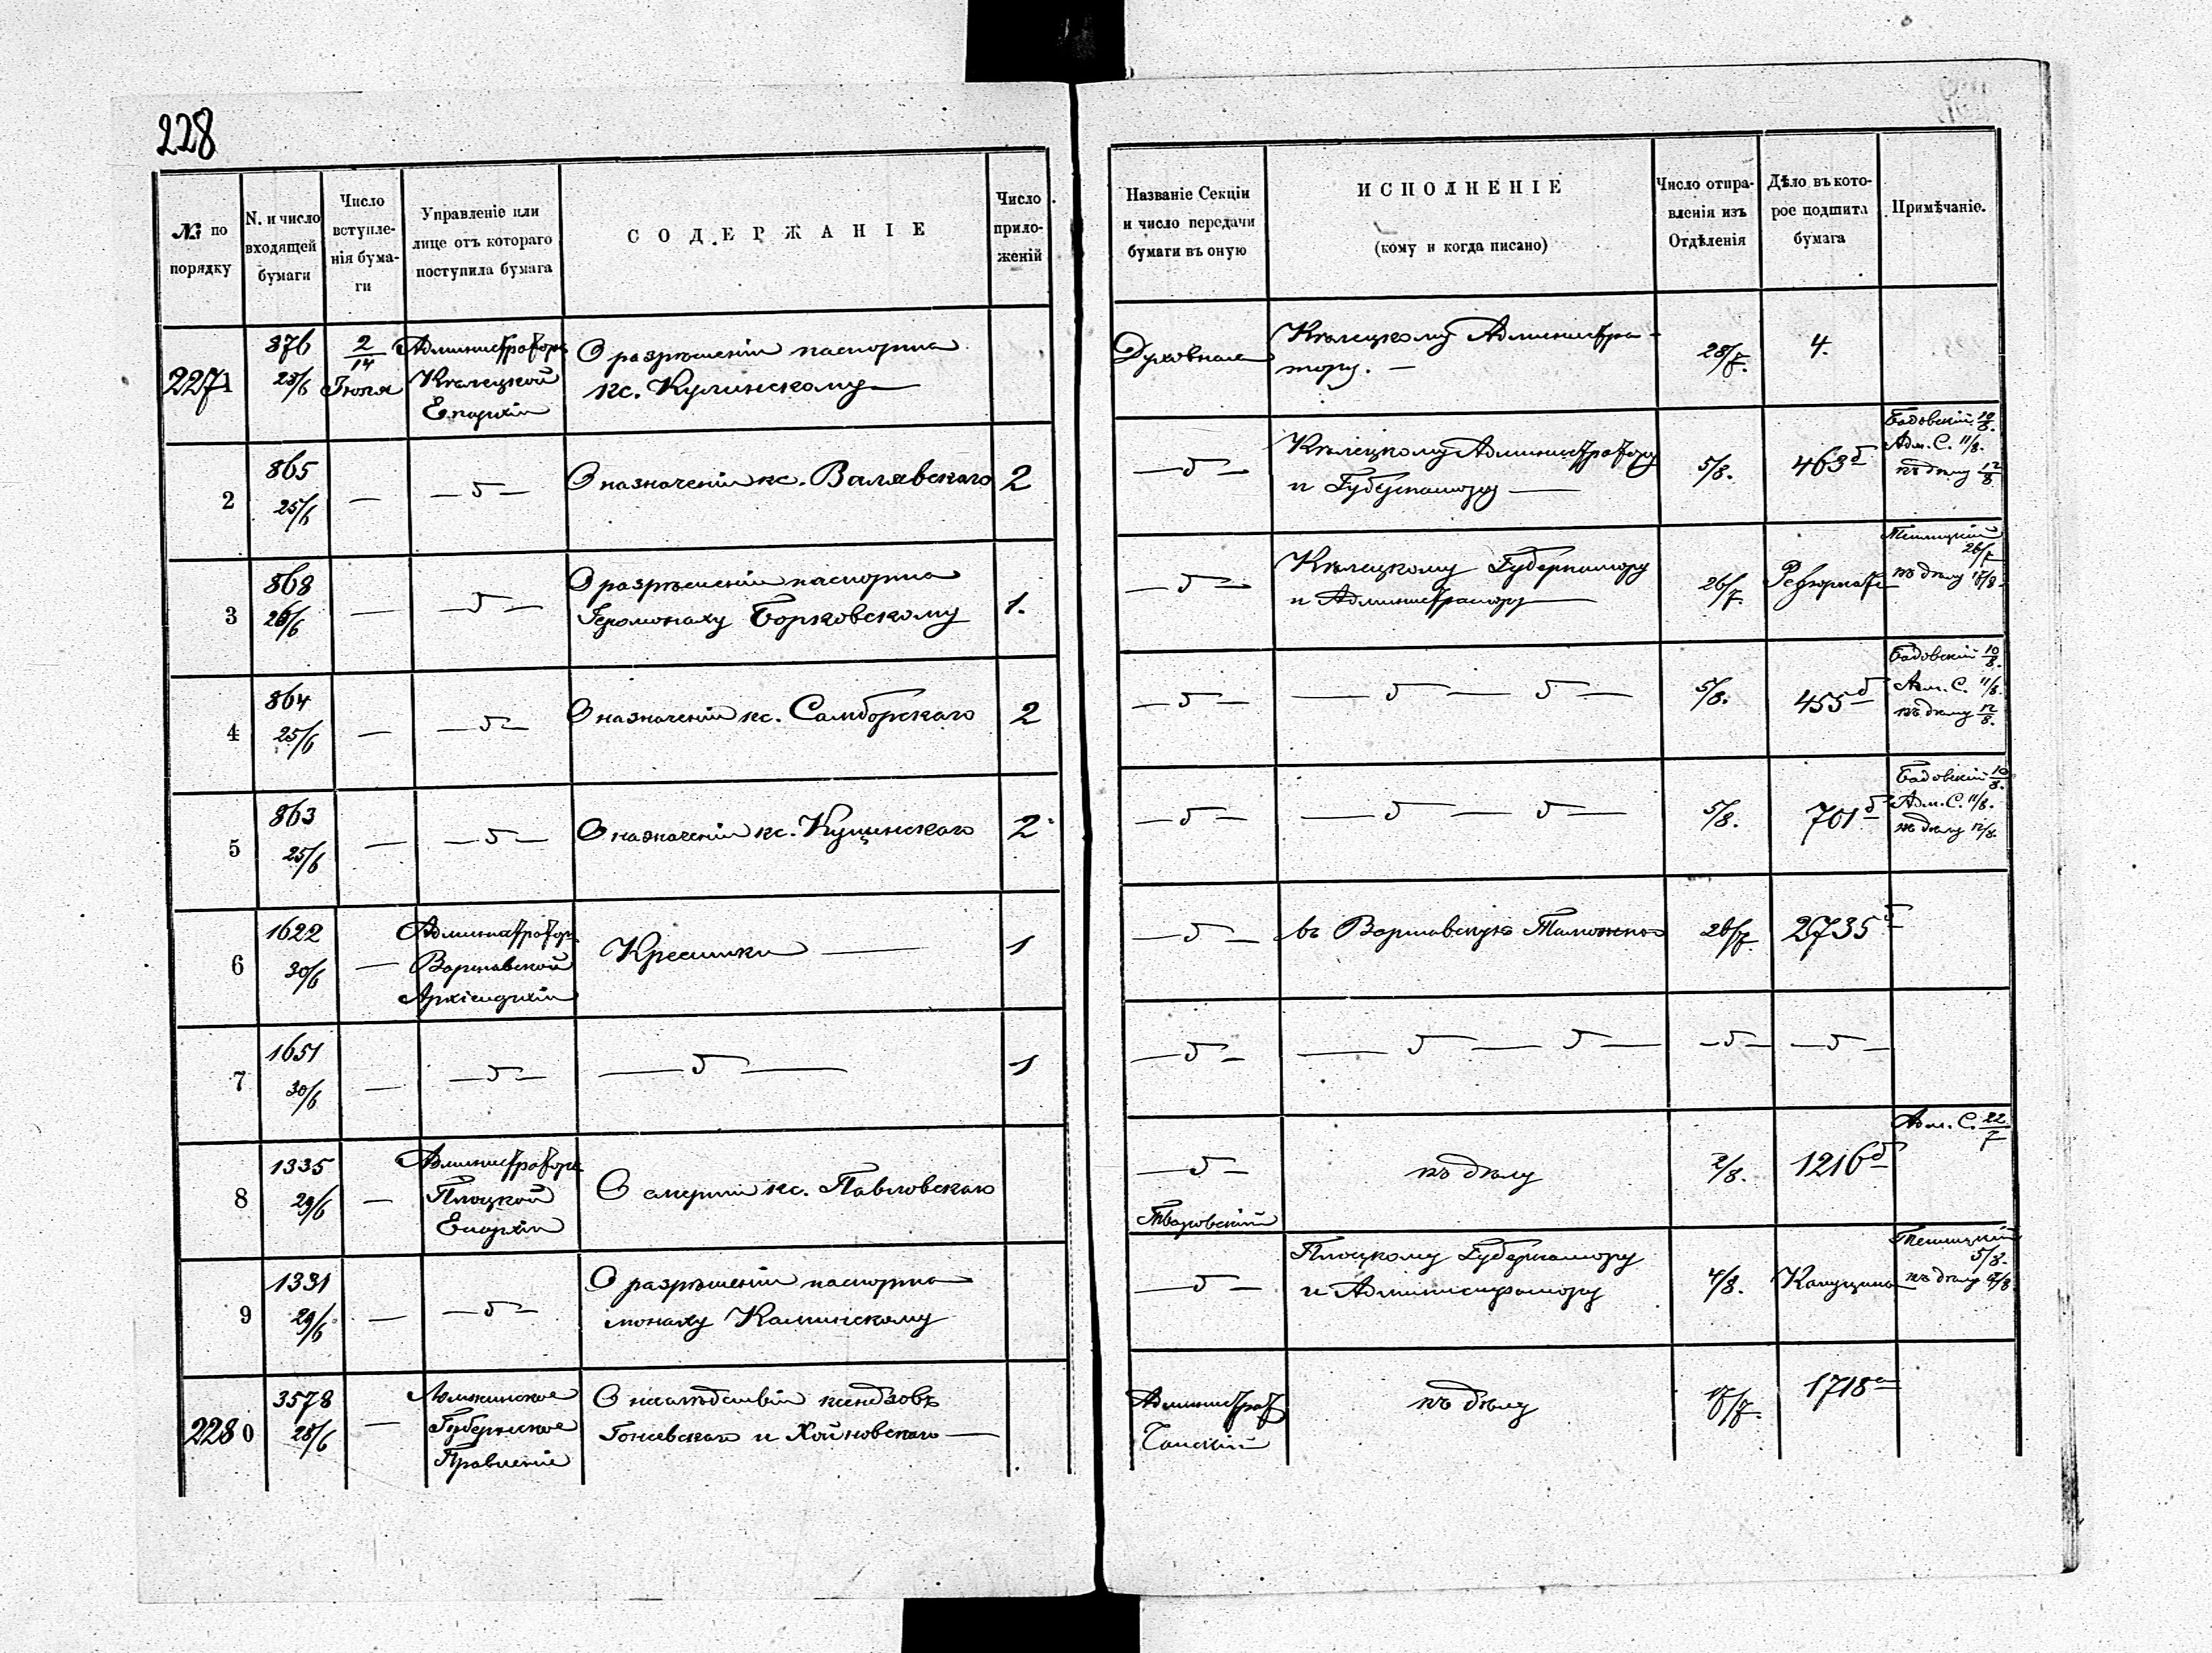 228
№ по порядку
N. и число входящей бумаги
Число вступле-нія бума-ги
Управленіе или лице отъ котораго поступила бумага
СОДЕРЖАНІЕ
Число прило-женій
Названіе Секціи и число передачи бумаги въ оную
ИСПОЛНЕНІЕ
(кому и когда писано)
Число отпра-вленія изъ Отдѣленія
Дѣло въ кото-рое подшита бумага
Примѣчаніе.
2271
876
25/6
2/14 Іюля
Администраторъ
Кѣлецкой
Епархіи
О разрѣшеніи паспорта
кс. Кулинскому —
Духовная
Кѣлецкому Администра-
тору. —
28/7.
4.
2
865
25/6
—
— 5 —
О назначеніи кс. Валявскаго
2
— 5 —
Кѣлецкому Администратору
и Губернатору —
5/8.
463 б
Бадовскій 10/8.
Адм. С. 11/8.
къ дѣлу 12/8
3
868
26/6
—
— 5 —
О разрѣшеніи паспорта
Іеромонаху Борковскому
1.
— 5 —
Кѣлецкому Губернатору
и Администратору —
26/7.
26/7
къ дѣлу
4
864
25/6
—
— 5 —
О назначеніи кс. Самборскаго
2
— 5 —
— 5 — 5 —
5/8.
455 б
Бадовскій 10/8.
Адм. С. 11/8.
къ дѣлу 12/8.
5
863
25/6
—
— 5 —
О назначеніи кс. Кущинскаго
2
— 5 —
— 5 — 5 —
5/8.
701 б
Бадовскій 10/8.
Адм. С. 11/8.
къ дѣлу 12/8.
6
1622
30/6
—
Администраторъ
Варшавской
Архіепархіи
Крестики —
1
— 5 —
въ Варшавскую Таможню
26/7.
2735
7
1651
30/6
—
— 5 —
— 5 —
1
— 5 —
— 5 — 5 —
— 5 —
— 5 —
8
1335
29/6
—
Администраторъ
Плоцкой
Епархіи
О смерти кс. Павловскаго
— 5 —
къ дѣлу
2/8.
1216 б
Адм. С. 22/7
9
1331
29/6
—
— 5 —
О разрѣшеніи паспорта
монаху Каминскому
— 5 —
Плоцкому Губернатору
и Администратору
4/8.
Капуцина
5/8.
къ дѣлу
2280
3578
28/6
—
Ломжинское
Губернское
Правленіе
ксендзовъ
и Хойновскаго —
къ дѣлу
17/7.
1718 а